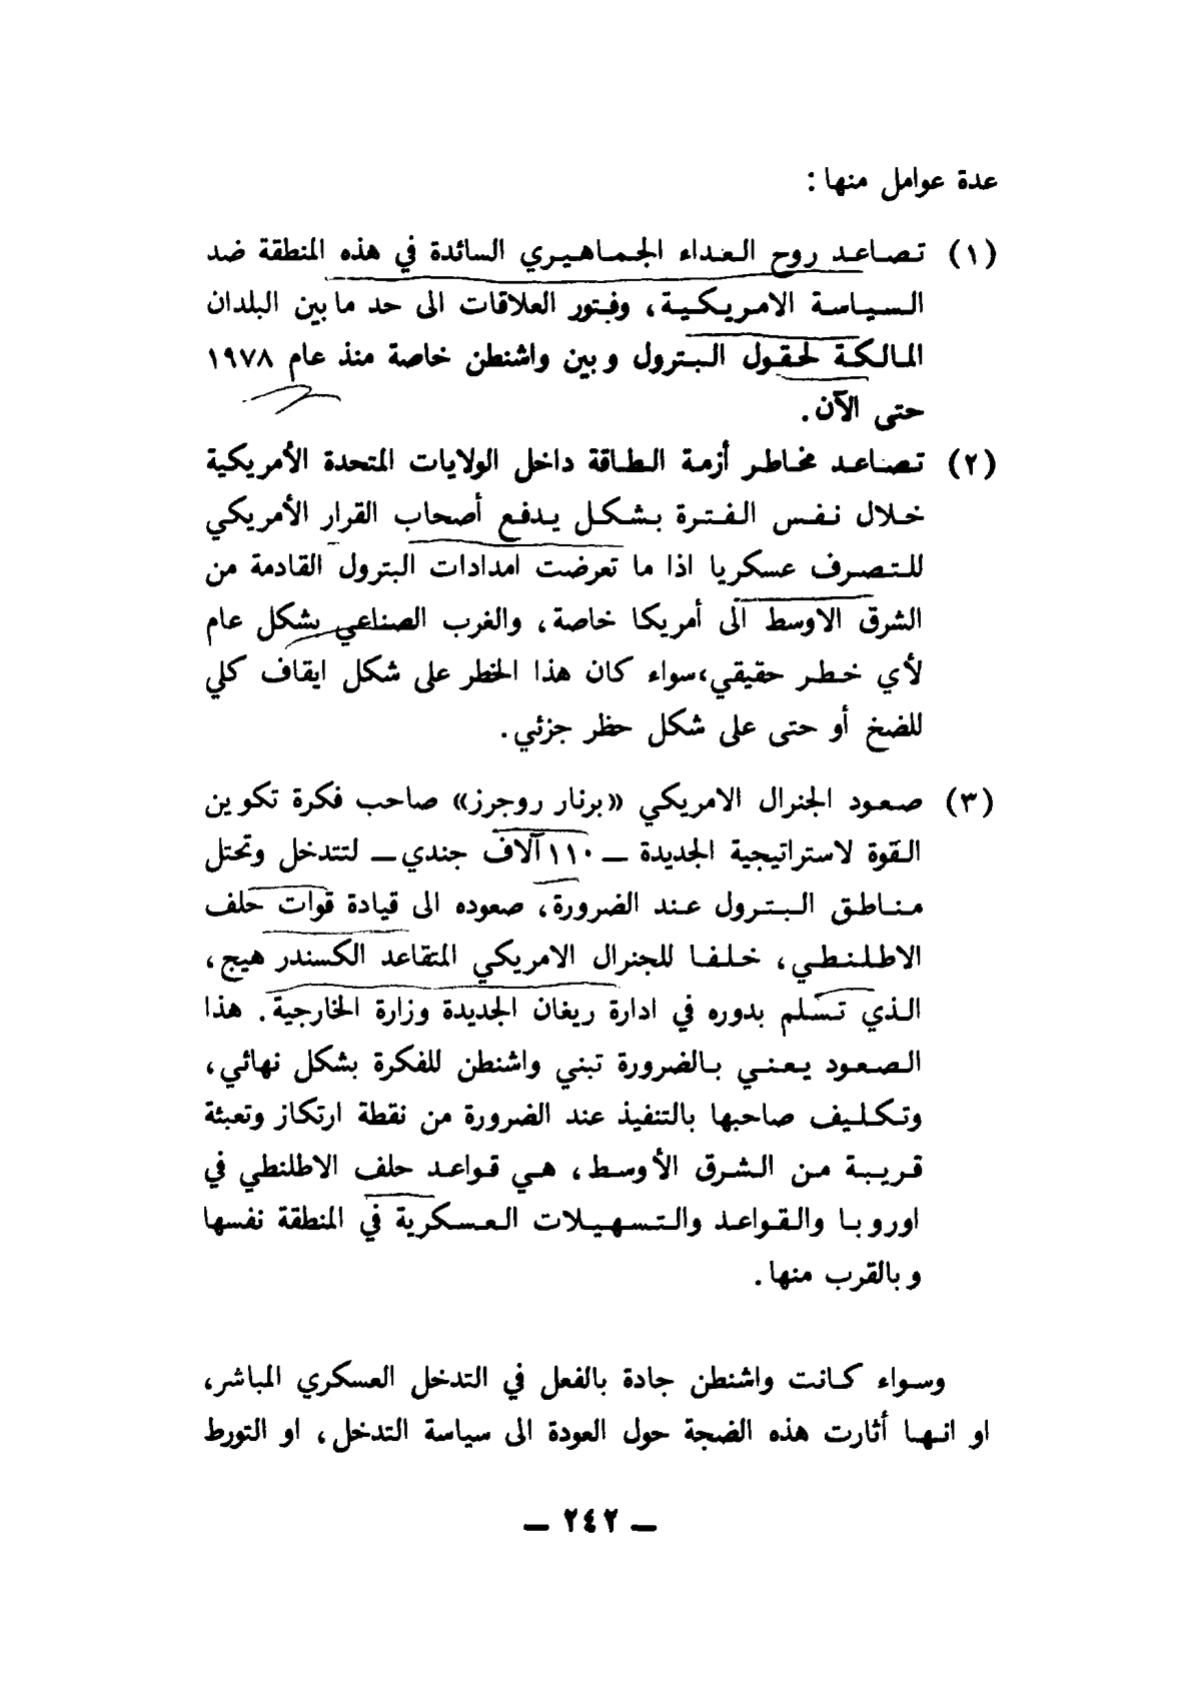 عدة عوامل منها :
(١) تصاعد روح العداء الجماهيري السائدة في هذه المنطقة ضد
السياسة الامريكية ، وفتور العلاقات الى حد ما بين البلدان
المالكة لحقول البترول وبين واشنطن خاصة منذ عام ١٩٧٨
حتى الآن .
(٢) تصاعد مخاطر أزمة الطاقة داخل الولايات المتحدة الأمريكية
خلال نفس الفترة بشكل يدفع أصحاب القرار الأمريكي
للتصرف عسكريا اذا ما تعرضت امدادات البترول القادمة من
الشرق الاوسط الى أمريكا خاصة ، والغرب الصناعي بشكل عام
لأي خطر حقيقي ،سواء كان هذا الخطر على شكل ايقاف كلي
للضخ أو حتى على شكل حظر جزئي .
(٣) صعود الجنرال الامريكي «برنار روجرز» صاحب فكرة تكوين
القوة لاستراتيجية الجديدة ــ ١١٠ آلاف جندي ــ لتتدخل وتحتل
مناطق البترول عند الضرورة ، صعوده الى قيادة قوات حلف
الاطلنطي ، خلفا للجنرال الامريكي المتقاعد الكسندر هيج ،
الذي تسلم بدوره في ادارة ريغان الجديدة وزارة الخارجية . هذا
الصعود يعني بالضرورة تبني واشنطن للفكرة بشكل نهائي ،
وتكليف صاحبها بالتنفيذ عند الضرورة من نقطة ارتكاز وتعبئة
قريبة من الشرق الأوسط ، هي قواعد حلف الاطلنطي في
اوروبا والقواعد والتسهيلات العسكرية في المنطقة نفسها
وبالقرب منها .
وسواء كانت واشنطن جادة بالفعل في التدخل العسكري المباشر ،
او انها أثارت هذه الضجة حول العودة الى سياسة التدخل ، او التورط
ــ ٢٤٢ ــ